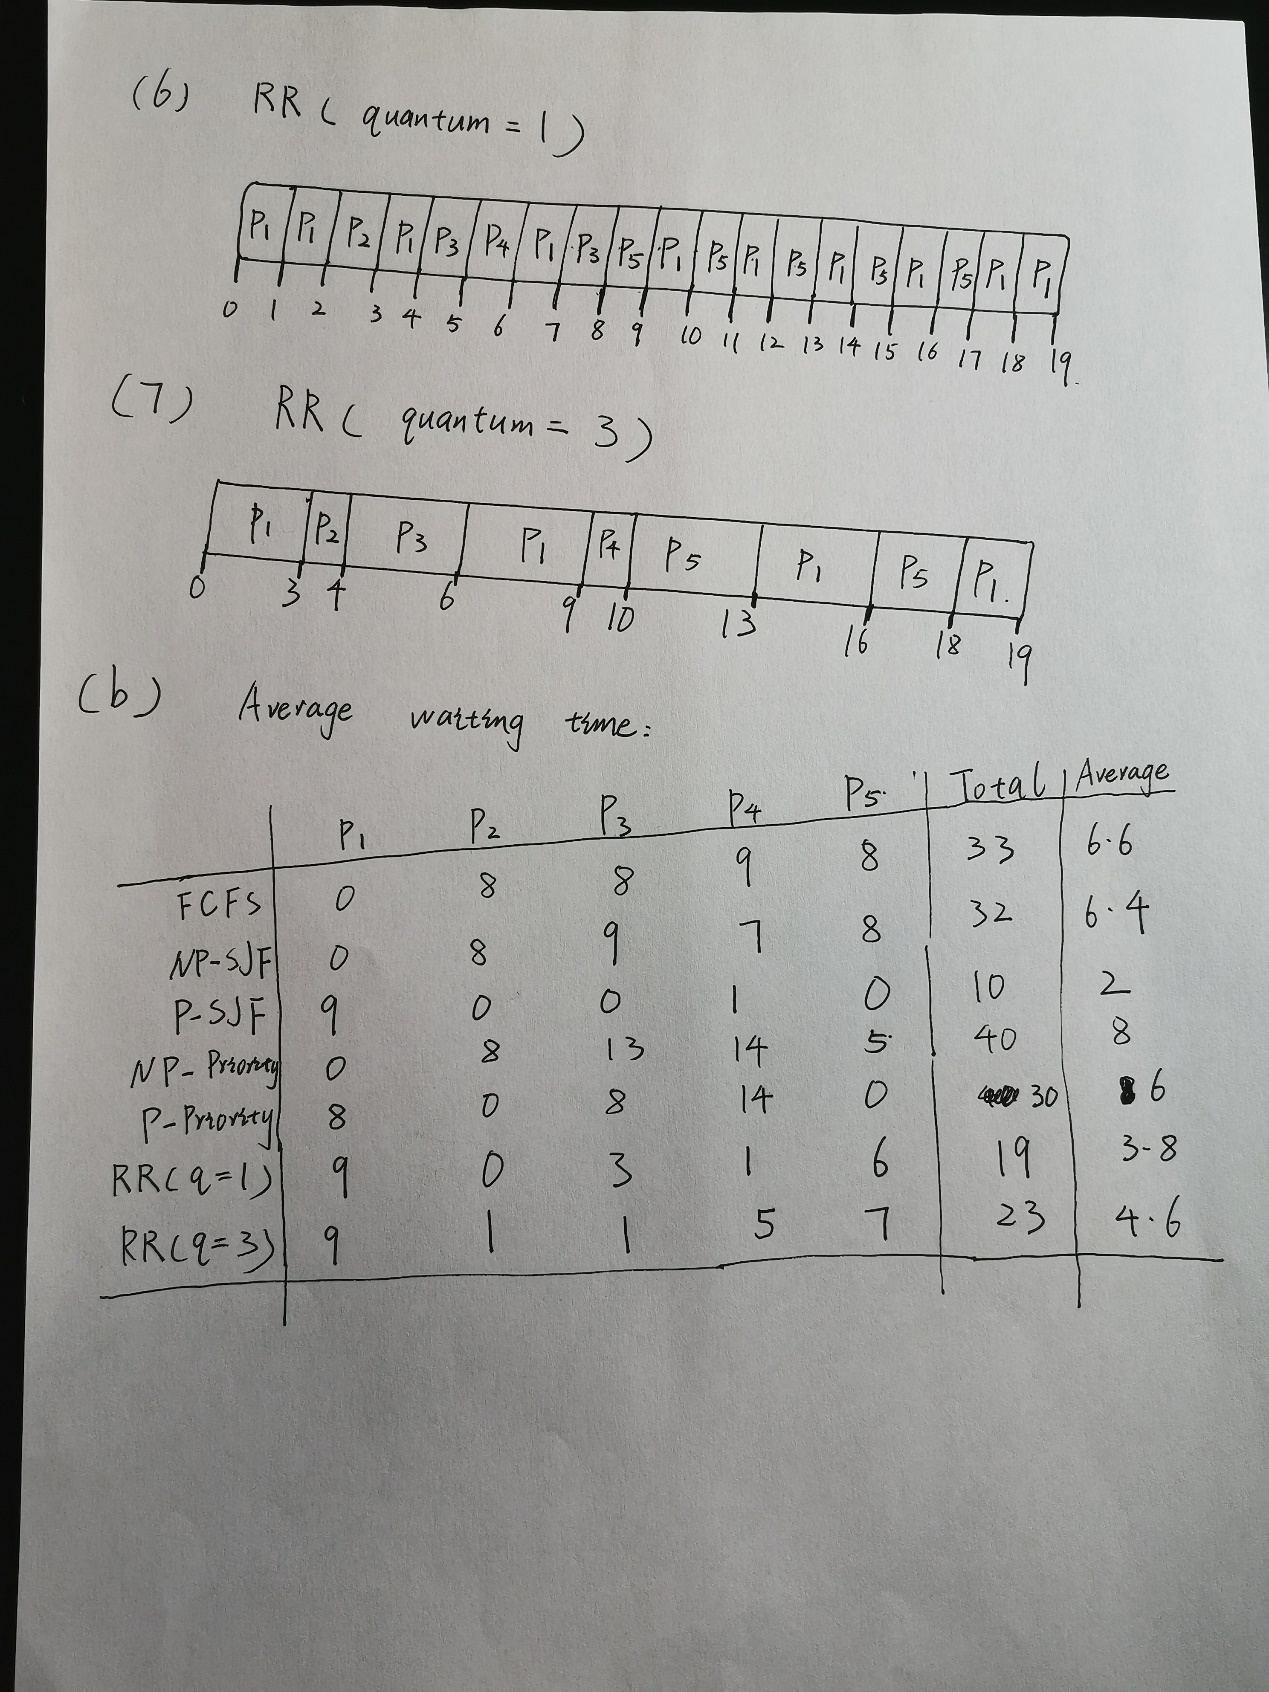 (6) RR ( quantum = 1 )
P1 P1 P2 P1 P3 P4 P1 P3 P5 P1 P5 P1 P5 P1 P5 P1 P5 P1 P1
0 1 2 3 4 5 6 7 8 9 10 11 12 13 14 15 16 17 18 19.
(7) RR ( quantum = 3 )
P1 P2 P3 P1 P4 P5 P1 P5 P1.
0 3 4 6 9 10 13 16 18 19
(b) Average waiting time:
P1 P2 P3 P4 P5 Total Average
FCFS 0 8 8 9 8 33 6.6
NP-SJF 0 8 9 7 8 32 6.4
P-SJF 9 0 0 1 0 10 2
NP-Priority 0 8 13 14 5 40 8
P-Priority 8 0 8 14 0 30 6
RR(q=1) 9 0 3 1 6 19 3.8
RR(q=3) 9 1 1 5 7 23 4.6